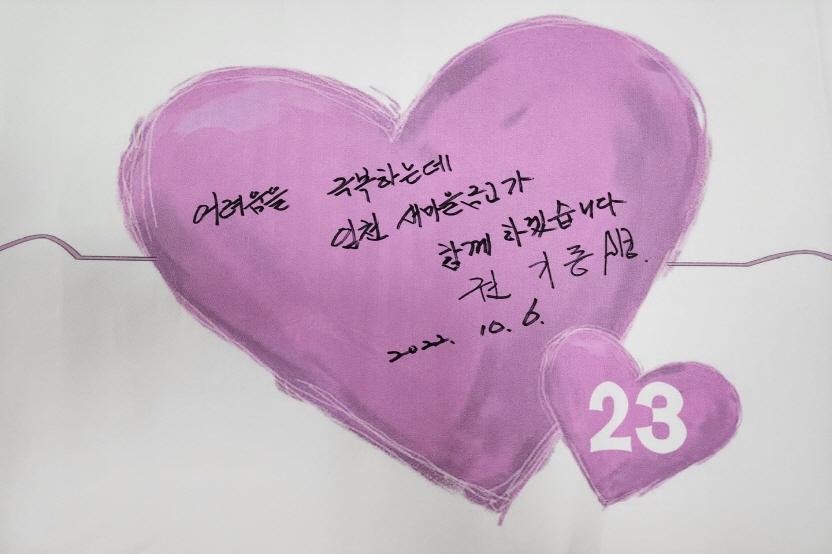 어려움을 극복하는데
인천 새마을금고가
함께 하겠습니다
권 기 종
2022. 10. 6.
23